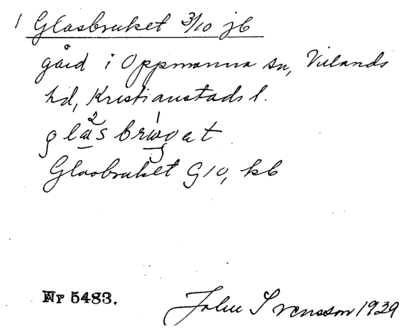 1 Glasbruket 3/10 jb
gård i Oppmanna sn, Villands
hd, Kristianstads l.
Glasbruket G10, kb
Nr 5483.
John Svensson 1929